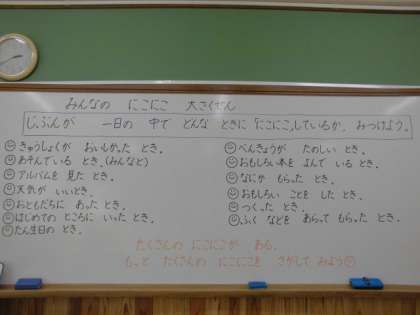 みんなの にこにこ 大さくせん
じぶんが 一日の 中で どんな ときに「にこにこ」しているか、みつけよう。
きゅうしょくが おいしかった とき。
あそんでいる とき。(みんなと)
アルバムを 見た とき。
天気が いいとき。
おともだちに あった とき。
はじめての ところに いった とき。
たん生日の とき。
べんきょうが たのしい とき。
おもしろい本を よんで いる とき。
なにか もらった とき。
おもしろい ことを した とき。
つくった とき。
ふく などを あらって もらった とき。
たくさんの にこにこが ある。
もっと たくさんの にこにこを さがして みよう